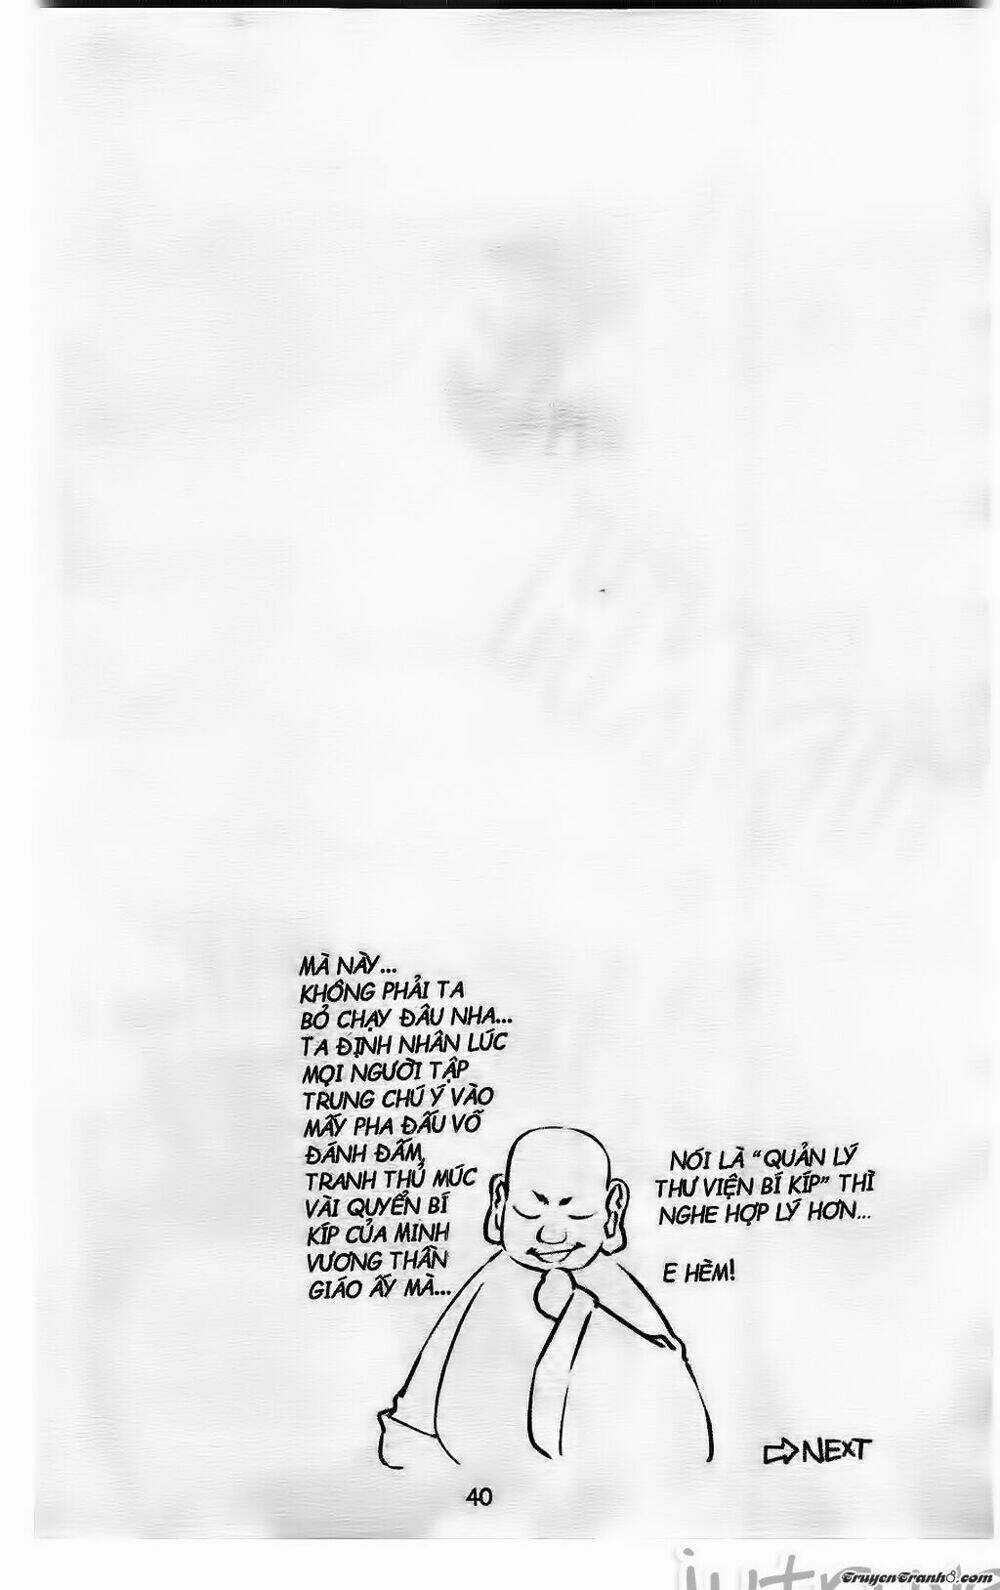 MÀ NÀY...
KHÔNG PHẢI TA
BỎ CHẠY ĐÂU NHA...
TA ĐỊNH NHÂN LÚC
MỌI NGƯỜI TẬP
TRUNG CHÚ Ý VÀO
MẤY PHA ĐẤU VÕ
ĐÁNH ĐẤM,
TRANH THỦ MÚC
VÀI QUYỂN BÍ
KÍP CỦA MINH
VƯƠNG THẦN
GIÁO ẤY MÀ...
NÓI LÀ "QUẢN LÝ
THƯ VIỆN BÍ KÍP" THÌ
NGHE HỢP LÝ HƠN...
E HÈM!
NEXT
40
TruyenTranh8.com